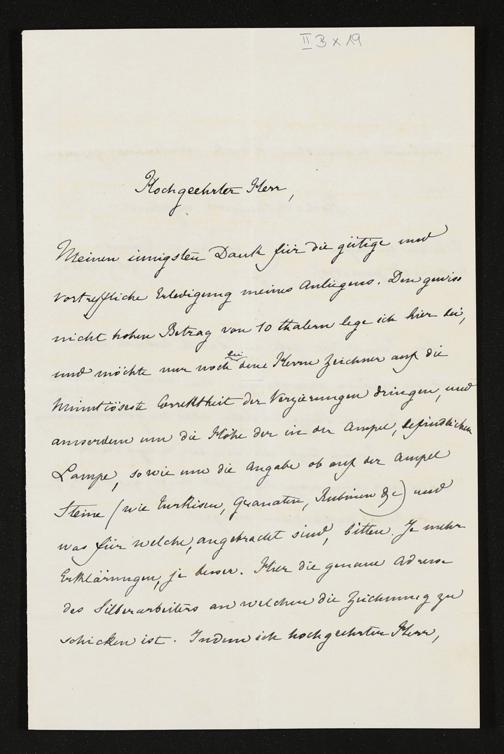 II B x 19
Hochgeehrter Herr,
Meinen innigsten Dank für die gütige und
vortreffliche Erledigung meines Anliegens. Den gewiss
nicht hohen Betrag von 10 thalern lege ich hier bei,
und möchte nur noch bei dem Herrn Zeichner auf die
Minutiöseste Correktheit der Verzierungen dringen, und
ausserdem um die Höhe der in der Ampel, befindlichen
Lampe, sowie um die Angabe ob auf der Ampel
Steine (wie Turkisen, Granaten, Rubinen &c) und
was für welche, angebracht sind, bitten. Je mehr
Erklärungen, je besser. Hier die genaue Adresse
des Silberarbeiters an welchen die Zeichnung zu
schicken ist. Indem ich hochgeehrter Herr,